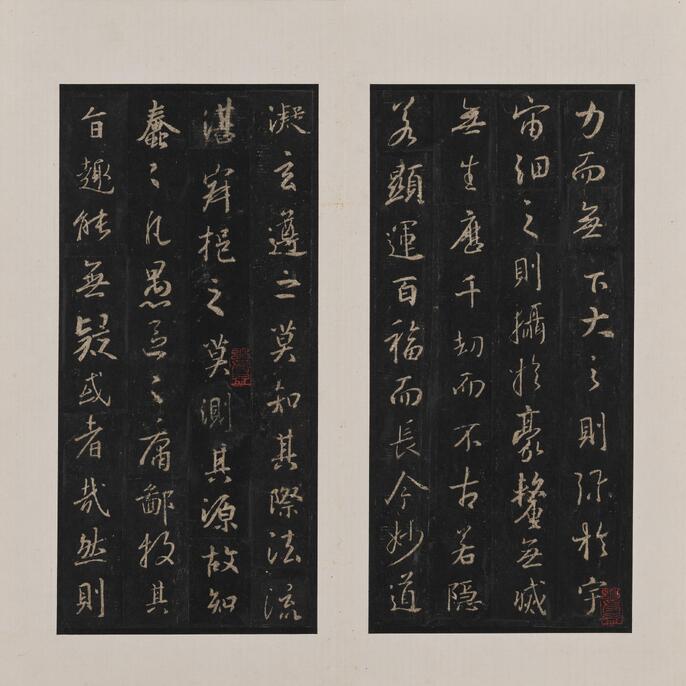 力而無下大之則彌於宇
宙細之則攝於豪釐無滅
無生歷千劫而不古若隱
若顯運百福而長今妙道
凝玄遵之莫知其際法流
湛寂挹之莫測其源故知
蠢〻凡愚區〻庸鄙投其
旨趣能無疑或者哉然則